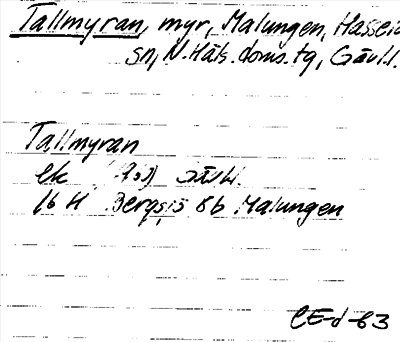 Tallmyran, myr, Malungen, Hassela
sn, N. Häls. doms. tg, Gävl.l.
Tallmyran
ek Gävl.
16 H Bergsjö 8b Malungen